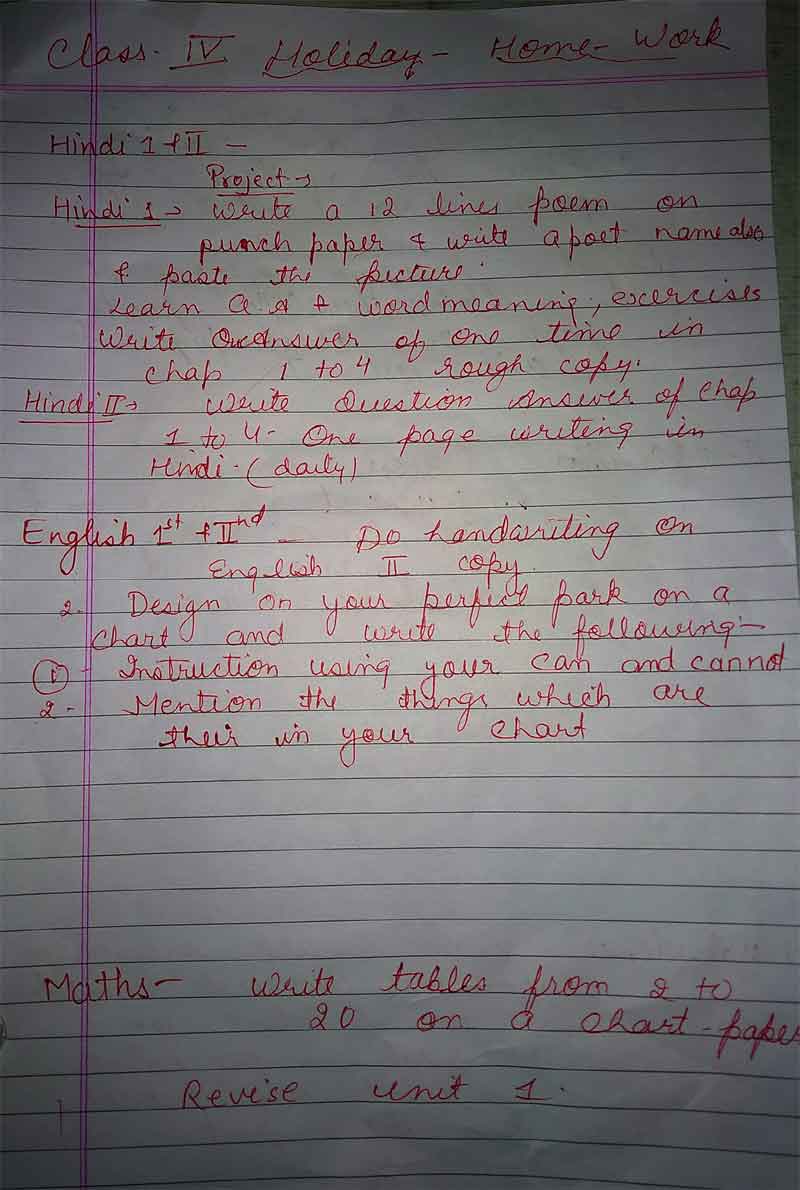 Class- IV Holiday- Home-Work
Hindi 1 + II -
Project →
Hindi 1 → Write a 12 lines poem on
punch paper & write a poet name also
& paste the picture.
Learn Q A & word meaning, excercises
Write Que Answer of one time in
chap 1 to 4 rough copy.
Hindi II → Write Question Answer of Chap
1 to 4- One page writing in
Hindi. (daily)
English 1st + IInd - Do handwriting on
English II copy
2. Design on your perfect park on a
chart and write the following-
① - Instruction using your can and cannot
2- Mention the things which are
their in your chart
Maths- Write tables from 2 to
20 on a chart-paper
Revise unit 1.